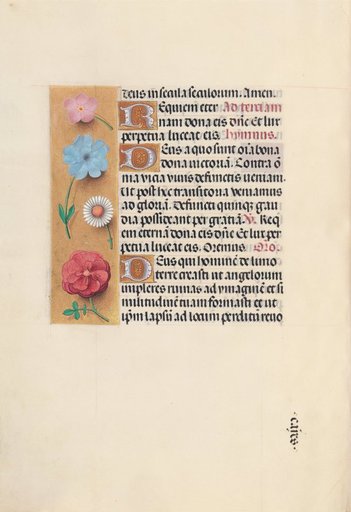 teus in secula seculorum. Amen.
Requiem eter Ad terciam
nam dona eis dñe Et lux
perpetua luceat eis. hymnus.
Deus a quo sunt oĩa bona
dona victoriã. Contra õ
ma vicia viuis defunctis veniam.
Ut post hec transitoria veniamus
ad gloriã. Defuncti quinque gau
dia possideant per gratiã. V. Req
em eternã dona eis dñe Et lux per
petua luceat eis. Oremus. Oro.
Deus qui hominẽ de limo
terre creasti ut angelorum
impleres ruinas ad ymaginẽ et si
militudinẽ tuam formasti et ut
ip̃m lapsũ ad locum perditũ reuo